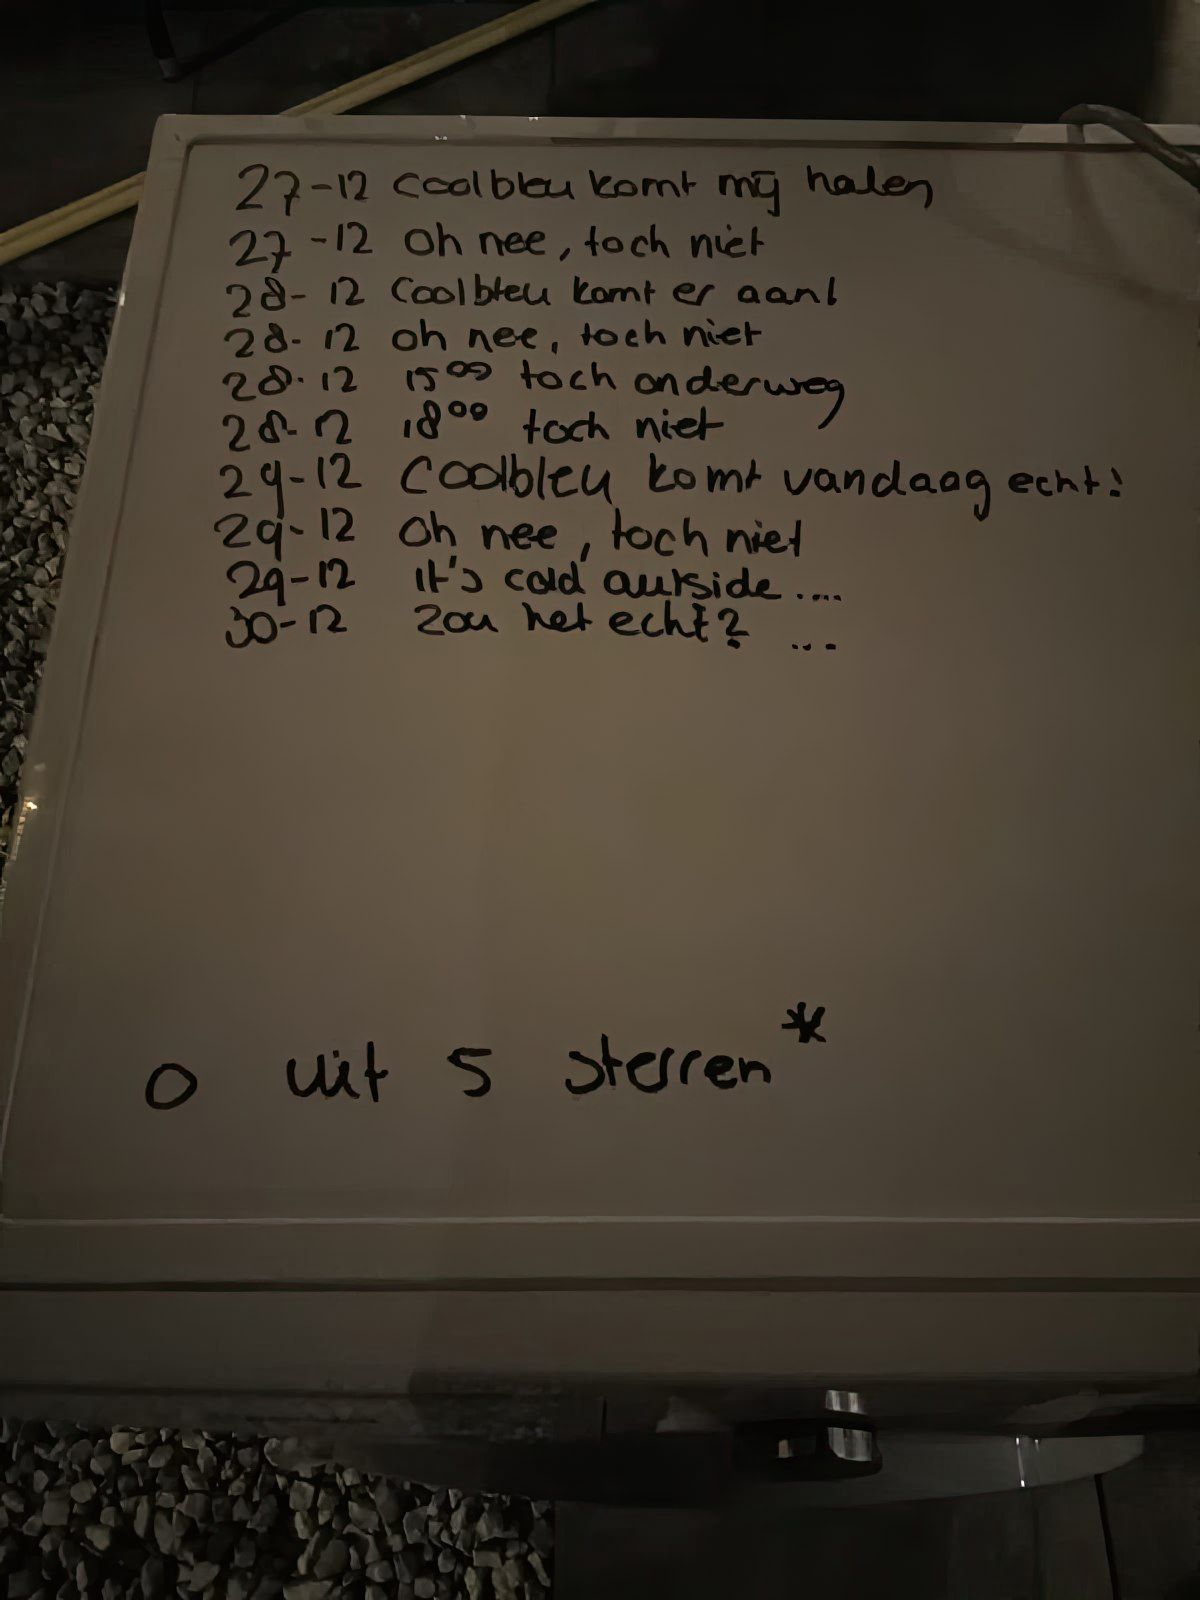 27-12 Coolbleu komt mij halen
27-12 Oh nee, toch niet
28-12 Coolbleu komt er aan!
28-12 oh nee, toch niet
28-12 15⁰⁰ toch onderweg
28-12 18⁰⁰ toch niet
29-12 Coolbleu komt vandaag echt!
29-12 Oh nee, toch niet
29-12 it's cold outside ....
30-12 Zou het echt? ...
0 uit 5 sterren*